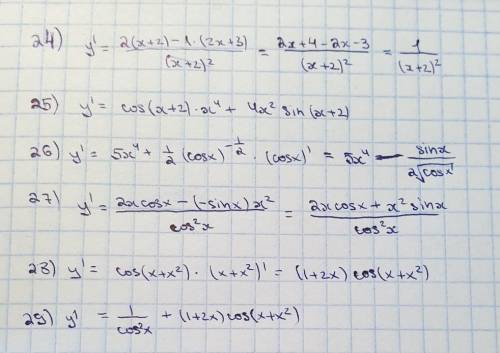 24) y' = (2(x+2) - 1·(2x+3))/(x+2)² = (2x+4-2x-3)/(x+2)² = 1/(x+2)²
25) y' = cos(x+2)·x⁴ + 4x² sin(x+2)
26) y' = 5x⁴ + 1/2 (cosx)^(-1/2) · (cosx)' = 5x⁴ - sinx/(2√cosx)
27) y' = (2x cosx - (-sinx)x²)/cos²x = (2x cosx + x² sinx)/cos²x
28) y' = cos(x+x²)·(x+x²)' = (1+2x) cos(x+x²)
29) y' = 1/cos²x + (1+2x)cos(x+x²)